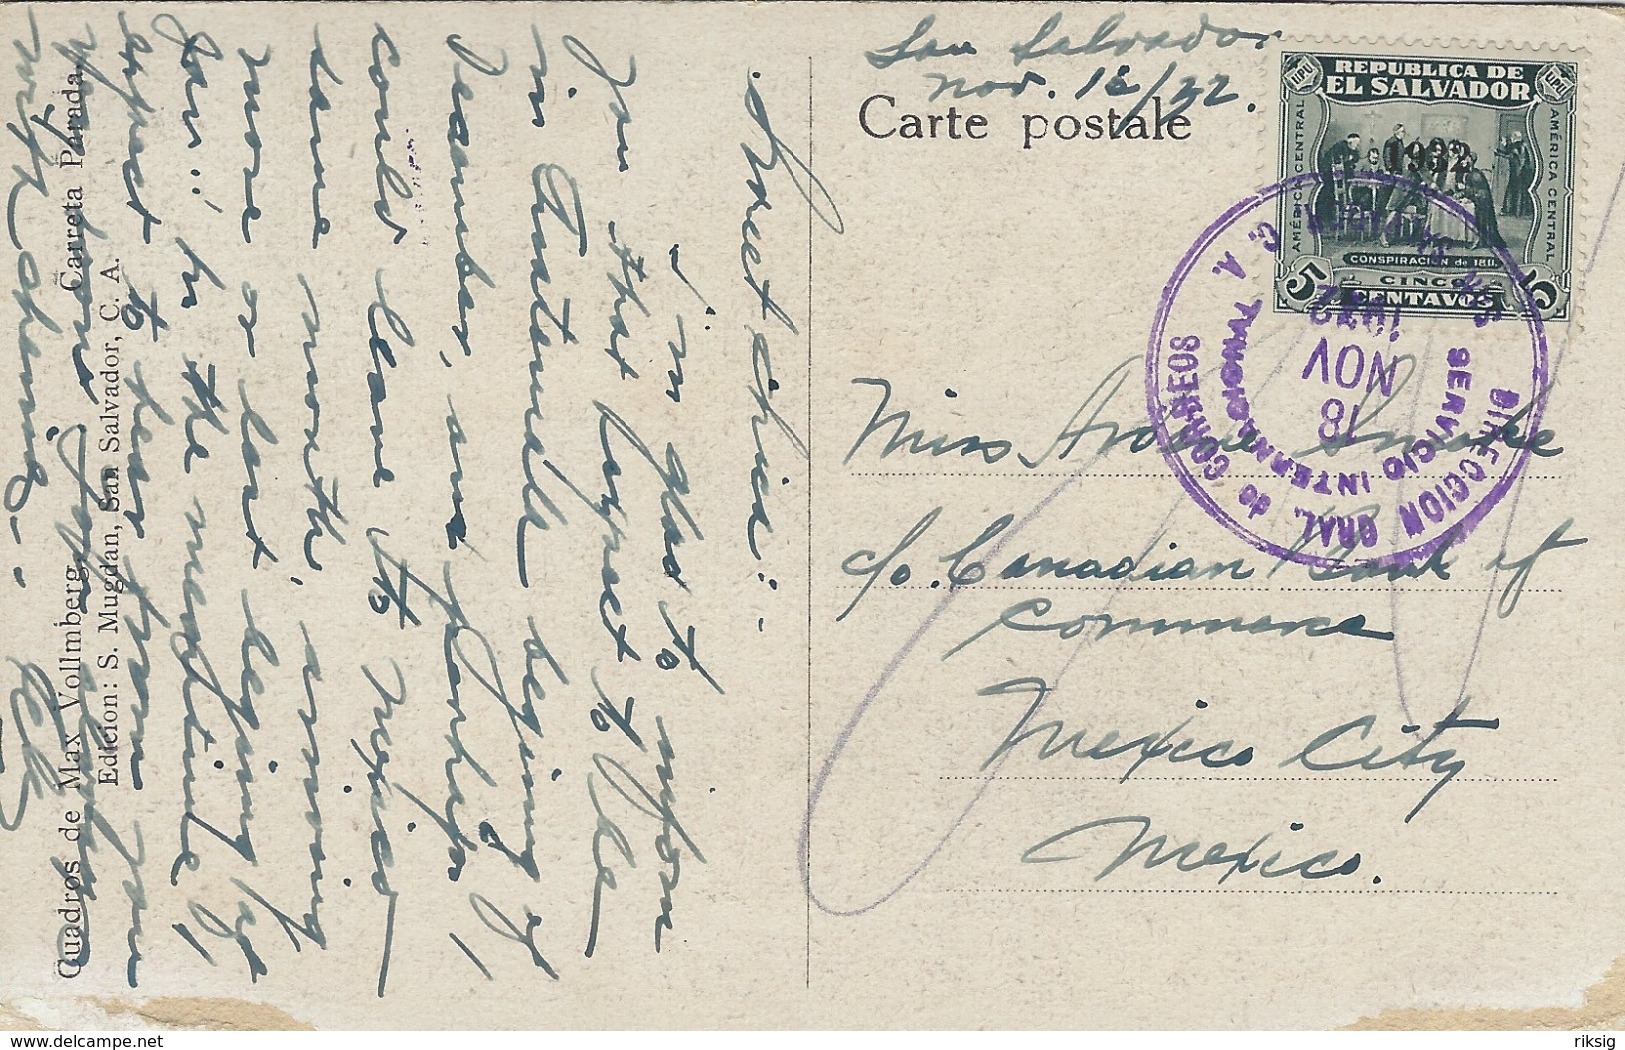 San Salvador
Nov. 18/32.
Carte postale
REPUBLICA DE
EL SALVADOR
UPU
UPU
AMÉRICA CENTRAL
AMÉRICA CENTRAL
1932
CONSPIRACION de 1811
5
CINCO
5
CENTAVOS
DIRECCION GRAL. de CORREOS
SERVICIO INTERNACIONAL
SAN SALVADOR C. A.
18
NOV
1932
Miss
c/o. Canadian Bank of
Commerce
Mexico City
Mexico.
Sweet chica:-
I'm glad to inform
you that I expect to be
in Guatemala begining of
December, and perhaps I
could leave to Mexico
same month, arriving
more or less begining of
Jan! in the meantime I
expect to hear from you
Cuadros de Max Vollmberg Carreta Parada
Edicion: S. Mugdan, San Salvador, C. A.
delcampe.net
riksig